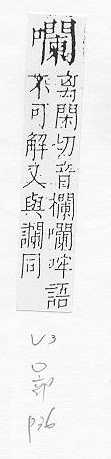 㘓
离閑切音欄㘓哰語
不可解文與讕同
V3
口部